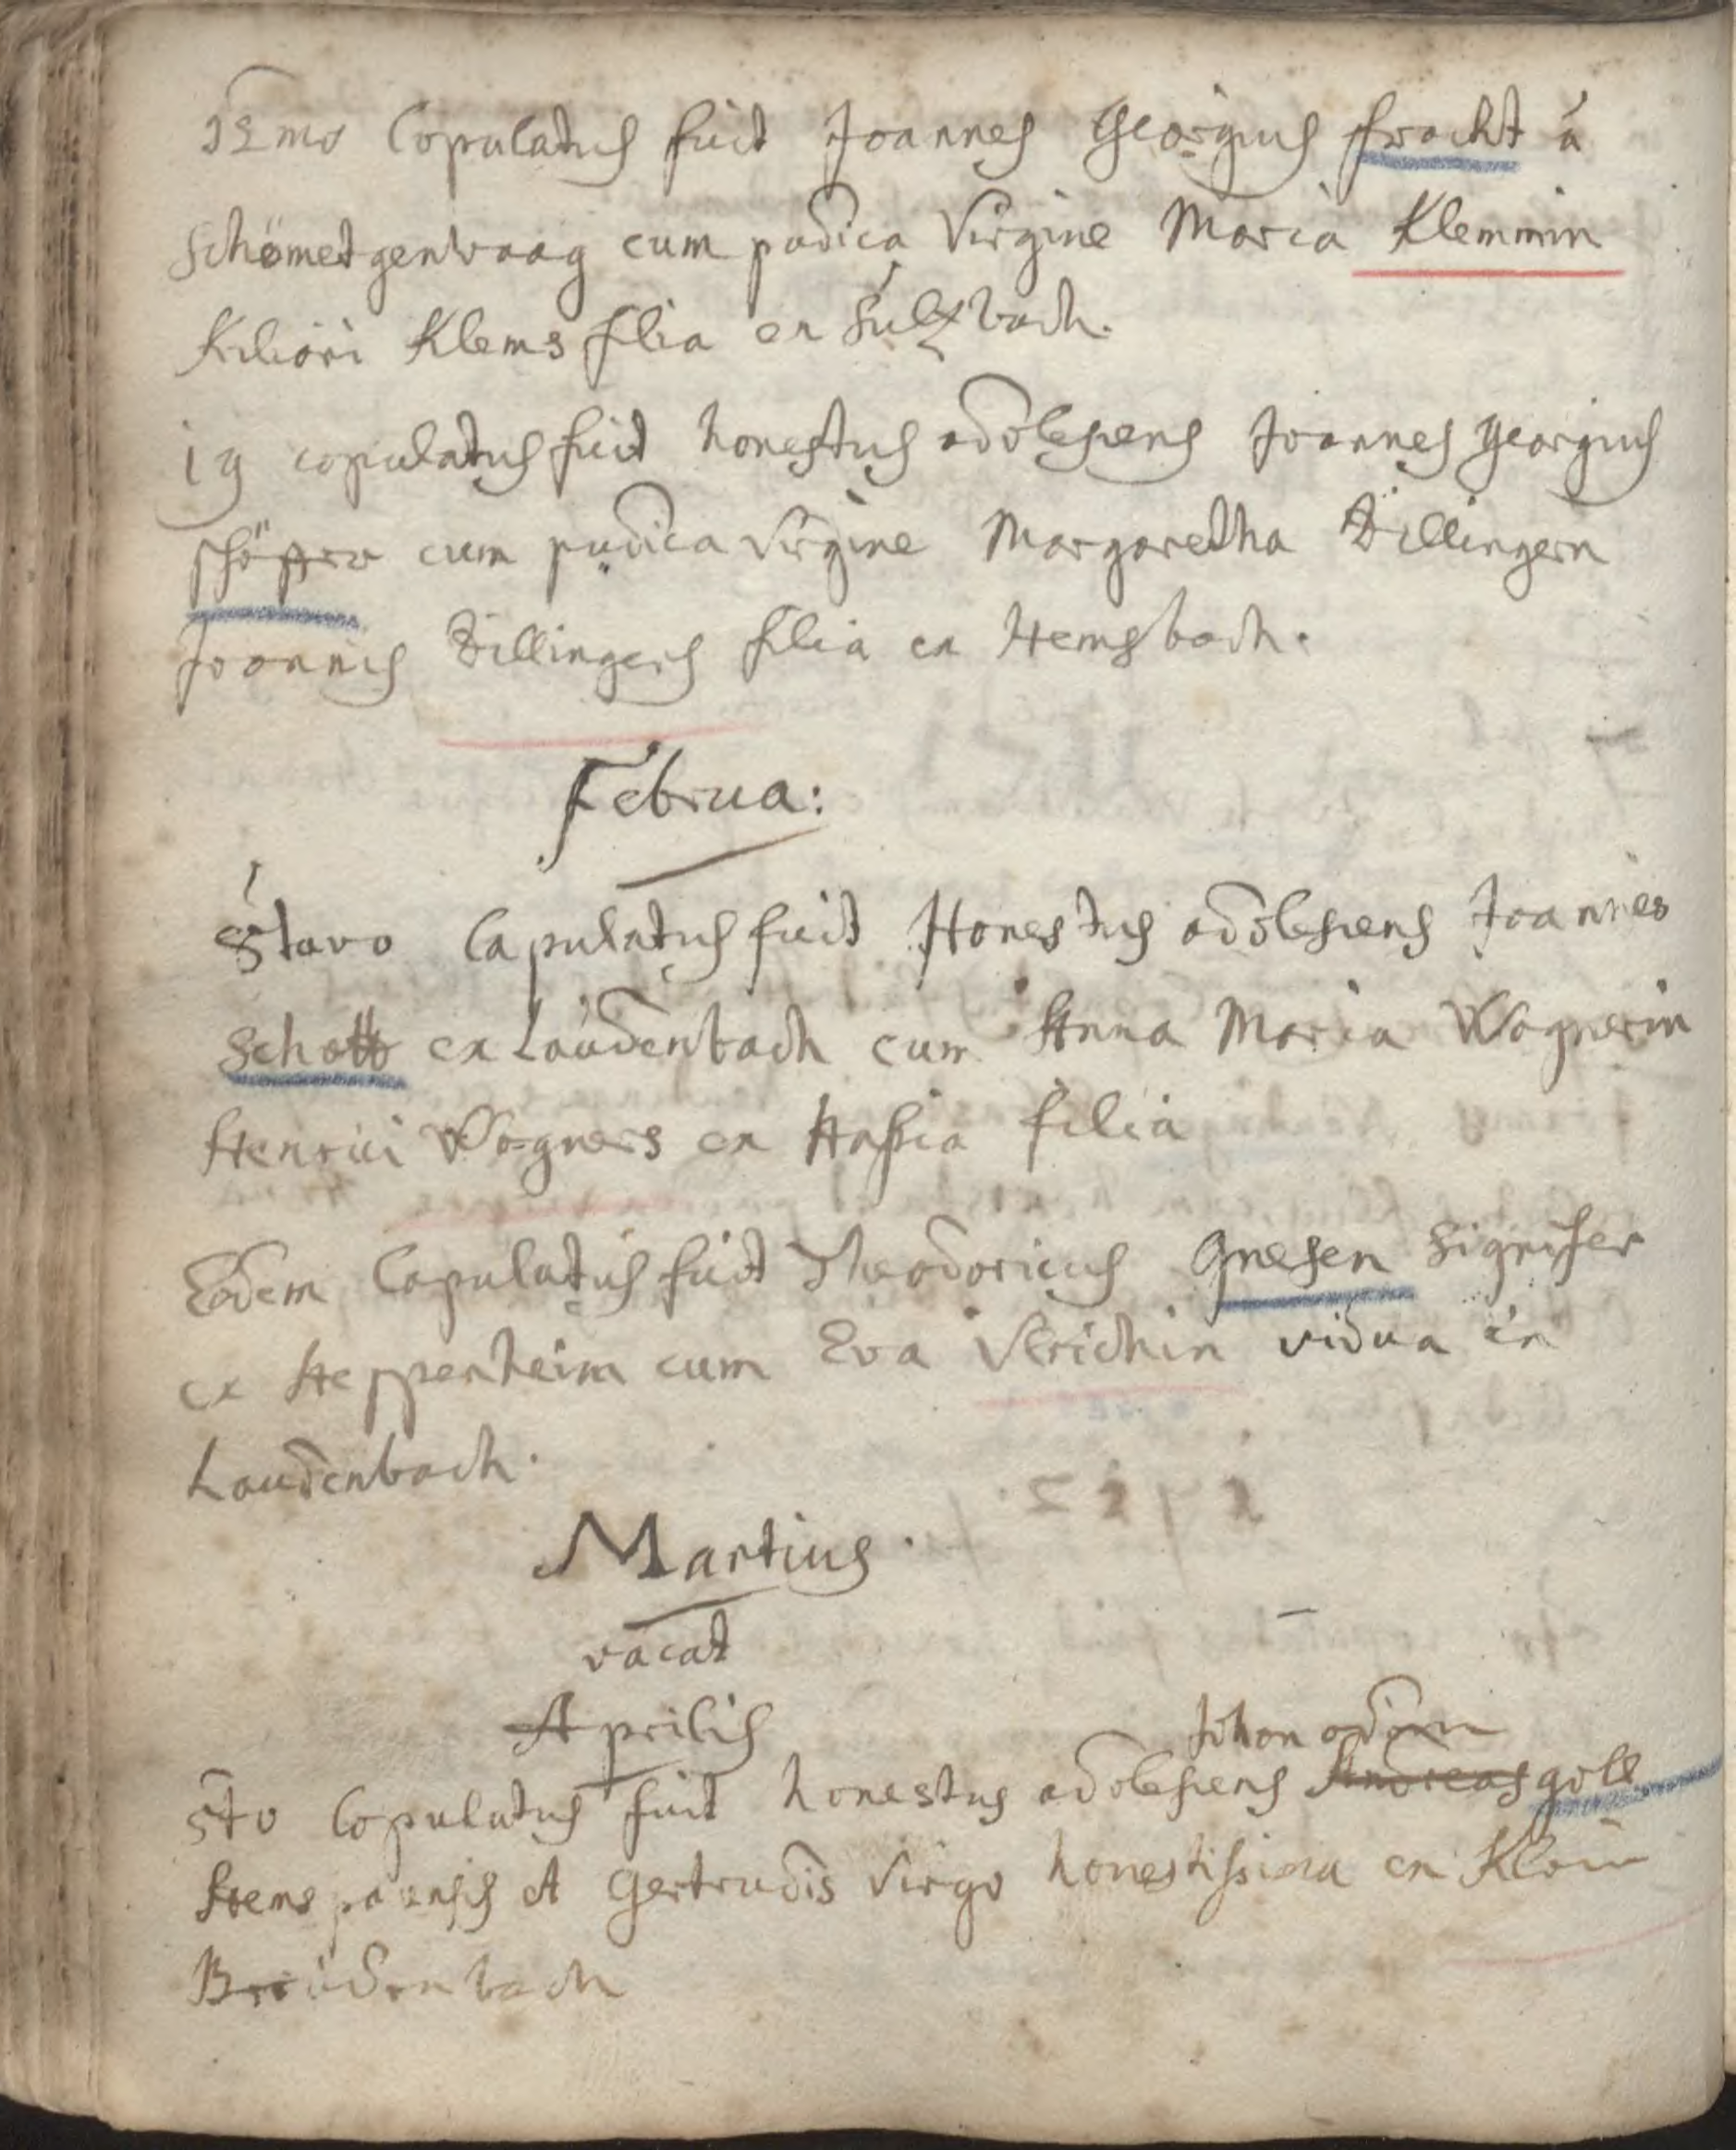 12mo Copulatus fuit Joannes Georgius fracht á
Schömetgenwaag cum pudica Virgine Maria Klemmin
Kiliani Klems filia ex Sulzbach.
19 copulatus fuit honestus adolescens Joannes Georgius
cum pudica Virgine Margaretha Dillingern
Joannis Dillingers filia ex Hemsbach.
Februa:
8tavo Copulatus fuit Honestus adolescens Joannes
Schott ex Laudenbach cum Anna Maria Wagnerin
Henrici Wagners ex Hassia filia
Eodem Copulatus fuit Theodoricus Gnesen Signifer
ex Heppenheim cum Eva Ulrichin vidua in
Laudenbach.
Martius.
vacat
Aprilis
Johan adam
5to Copulatus fuit honestus adolescens Andreas goll
et Gertrudis Virgo honestissima ex Klein